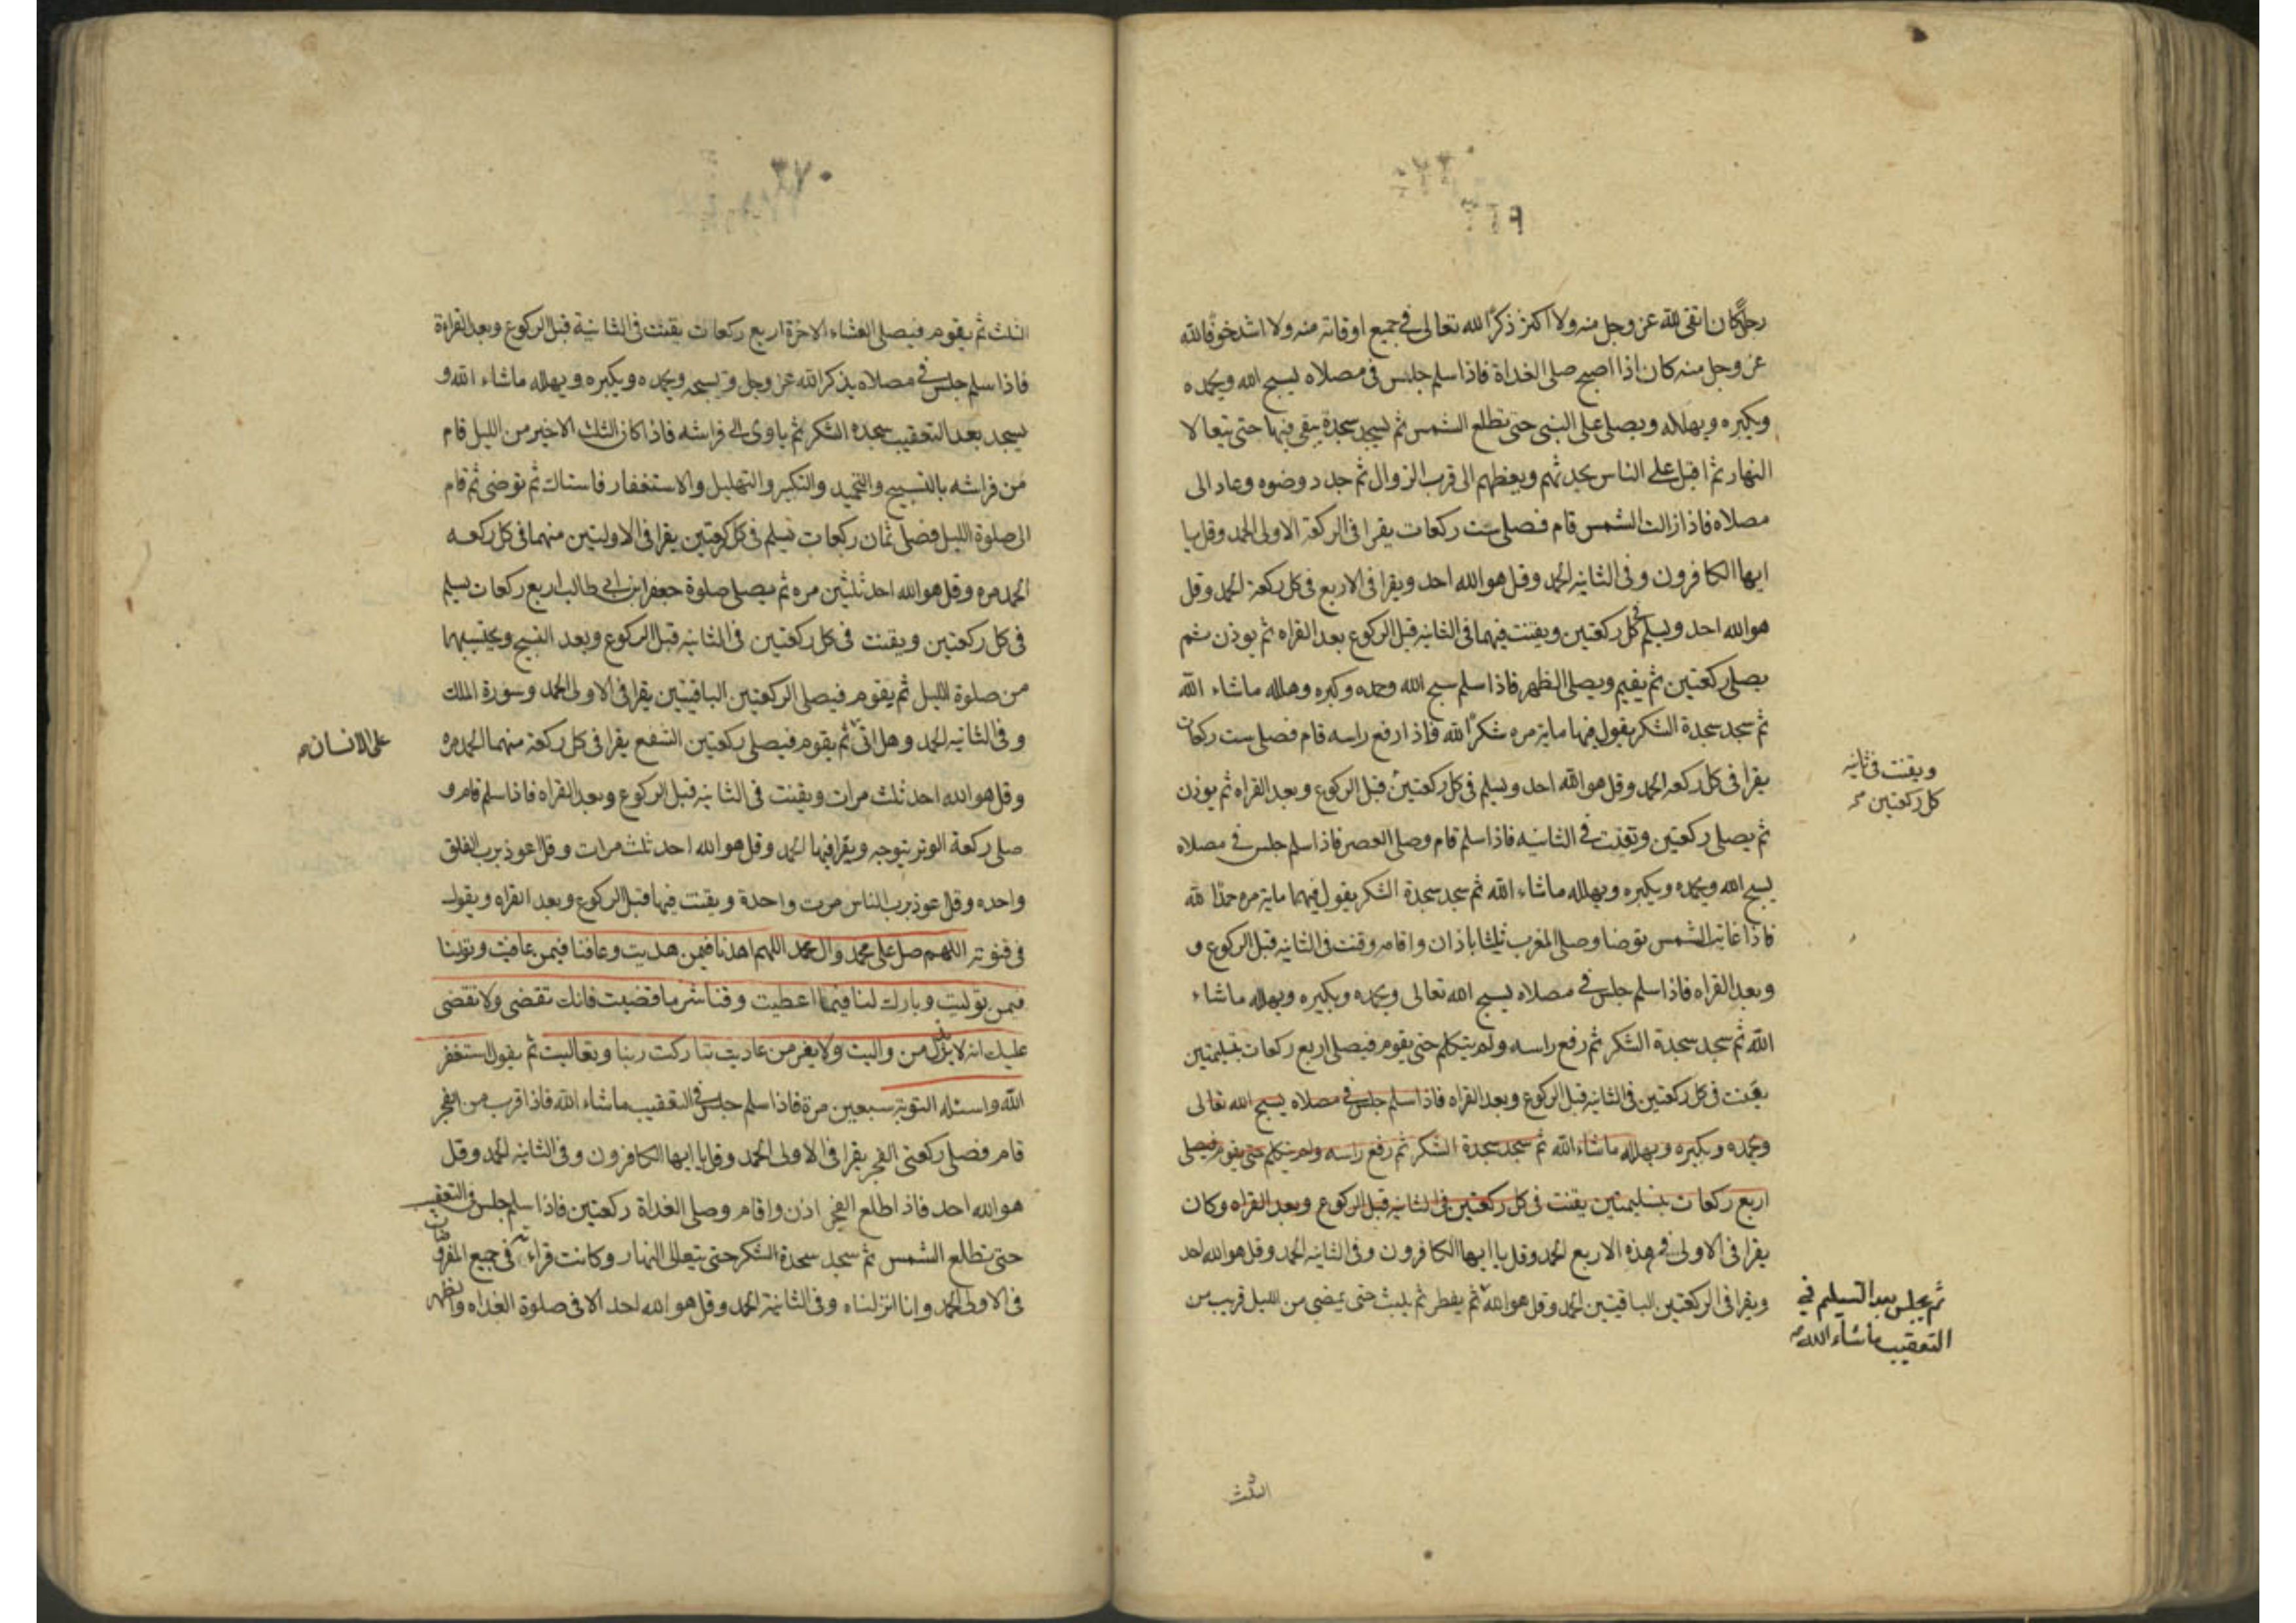 رجلا كان اتقى لله عز وجل منه ولا اكثر ذكرا لله تعالى في جميع اوقاته منه ولا اشد خوفا لله
عز وجل منه كان اذا اصبح صلى الغداة فاذا سلم جلس في مصلاه يسبح الله ويحمده
ويكبره ويهلله ويصلى على النبي حتى تطلع الشمس ثم يسجد سجدة يبقى فيها حتى يتعالا
النهار ثم اقبل على الناس يحدثهم ويعظهم الى قرب الزوال ثم جدد وضوه وعاد الى
مصلاه فاذا زالت الشمس قام فصلى ست ركعات يقرا في الركعة الاولى الحمد وقل يا
ايها الكافرون وفى الثانيه الحمد وقل هو الله احد ويقرا في الاربع في كل ركعة الحمد وقل
هو الله احد ويسلم في كل ركعتين ويقنت فيهما في الثانيه قبل الركوع بعد القراه ثم يوذن ثم
يصلى ركعتين ثم يقيم ويصلى الظهر فاذا سلم سبح الله وحمده وكبره وهلله ماشاء الله
ثم سجد سجدة الشكر يقول فيها ماية مره شكرا لله فاذا رفع راسه قام فصلى ست ركعات
يقرا في كل ركعه الحمد وقل هو الله احد ويسلم في كل ركعتين قبل الركوع وبعد القراه ثم يوذن
ويقنت في ثانيه
كل ركعتين
ثم يصلى ركعتين وتقنت في الثانيه فاذا سلم قام وصلى العصر فاذا سلم جلس في مصلاه
يسبح الله ويحمده ويكبره ويهلله ماشاء الله ثم سجد سجدة الشكر يقول فيهما ماية مره حمدا لله
فاذا غابت الشمس توضا وصلى المغرب ثلثا باذان واقامه وقنت في الثانيه قبل الركوع و
وبعد القراه فاذا سلم جلس في مصلاه يسبح الله تعالى ويحمده ويكبره ويهلله ماشاء
الله ثم سجد سجدة الشكر ثم رفع راسه ولم يتكلم حتى يقوم فيصلى اربع ركعات بتسليمتين
يقنت في كل ركعتين في الثانيه قبل الركوع وبعد القراه فاذا سلم جلس في مصلاه يسبح الله تعالى
ويحمده ويكبره ويهلله ماشاء الله ثم سجد سجدة الشكر ثم رفع راسه ولم يتكلم حتى يقوم فيصلى
اربع ركعات بتسليمتين يقنت في كل ركعتين في الثانيه قبل الركوع وبعد القراه وكان
يقرا في الاولى في هذه الاربع الحمد وقل يا ايها الكافرون وفى الثانيه الحمد وقل هو الله احد
ويقرا في الركعتين الباقيتين الحمد وقل هو الله ثم يفطر ثم يلبث حتى يمضى من الليل قريب من
ثم يجلس بعد التسليم في
التعقيب ماشاء الله
الثلث
الثلث ثم يقوم فيصلى العشاء الاخرة اربع ركعات يقنت في الثانية قبل الركوع وبعد القراءة
فاذا سلم جلس في مصلاه يذكر الله عز وجل ويسبحه ويحمده ويكبره ويهلله ماشاء الله و
يسجد بعد التعقيب سجدة الشكر ثم ياوى الى فراشه فاذا كان الثلث الاخير من الليل قام
من فراشه بالتسبيح والتحميد والتكبير والتهليل والاستغفار فاستاك ثم توضى ثم قام
الى صلوة الليل فصلى ثمان ركعات يسلم في كل ركعتين يقرا في الاوليتين منهما في كل ركعه
الحمد مره وقل هو الله احد ثلثين مره ثم يصلى صلوة جعفر ابن ابى طالب اربع ركعات يسلم
في كل ركعتين ويقنت في كل ركعتين في الثانيه قبل الركوع وبعد التسبيح ويحتسبهما
من صلوة الليل ثم يقوم فيصلى الركعتين الباقيتين يقرا في الاولى الحمد وسورة الملك
وفى الثانيه الحمد وهل اتى ثم يقوم فيصلى ركعتين الشفع يقرا في كل ركعة منهما الحمد مره
على الانسان
وقل هو الله احد ثلث مرات ويقنت في الثانيه قبل الركوع وبعد القراه فاذا سلم قام و
صلى ركعة الوتر يتوجه ويقرا فيها الحمد وقل هو الله احد ثلث مرات وقل اعوذ برب الفلق
واحده وقل عوذ برب الناس مرت واحدة ويقنت فيها قبل الركوع وبعد القراه ويقول
في قنوته اللهم صل على محمد وال محمد اللهم اهدنا فيمن هديت وعافنا فيمن عافيت وتولنا
فيمن توليت وبارك لنا فيما اعطيت وقنا شر ما قضيت فانك تقضى ولا تقضى
عليك انه لا يذل من واليت ولا يعز من عاديت تباركت ربنا وتعاليت ثم يقول استغفر
الله واسئله التوبة سبعين مرة فاذا سلم جلس في التعقيب ماشاء الله فاذا قرب من الفجر
قام فصلى ركعتى الفجر يقرا في الاولى الحمد وقل يا ايها الكافرون وفى الثانيه الحمد وقل
هو الله احد فاذا طلع الفجر اذن واقام وصلى الغداة ركعتين فاذا سلم جلس في التعقيب
حتى تطلع الشمس ثم سجد سجدة الشكر حتى يتعالى النهار وكانت قراءته في جميع المفروضات
في الاولى الحمد وانا انزلناه وفى الثانية الحمد وقل هو الله احد الا في صلوة الغداه والظهر